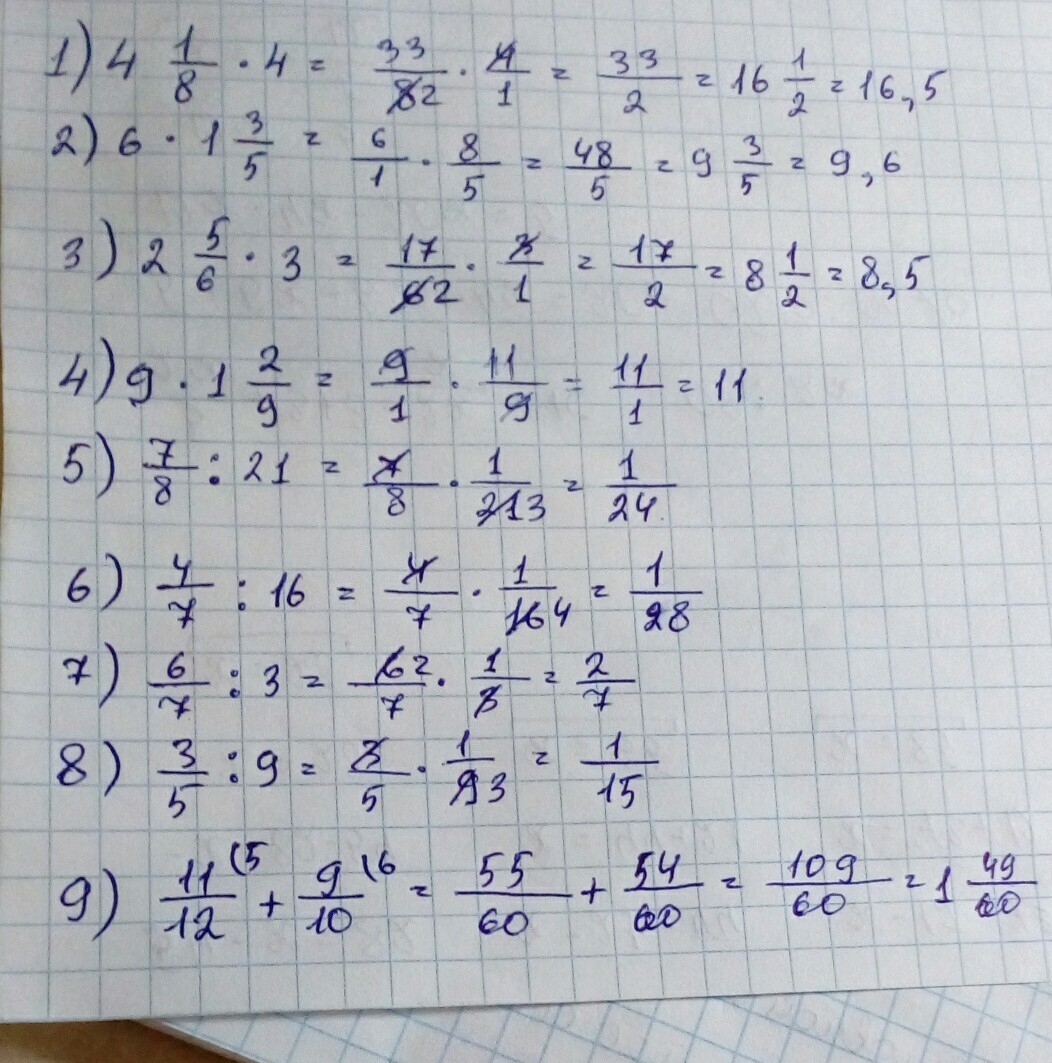 1) 4 1/8 · 4 = 33/82 · 4/1 = 33/2 = 16 1/2 = 16,5
2) 6 · 1 3/5 = 6/1 · 8/5 = 48/5 = 9 3/5 = 9,6
3) 2 5/6 · 3 = 17/62 · 3/1 = 17/2 = 8 1/2 = 8,5
4) 9 · 1 2/9 = 9/1 · 11/9 = 11/1 = 11.
5) 7/8 : 21 = 7/8 · 1/213 = 1/24.
6) 4/7 : 16 = 4/7 · 1/164 = 1/28
7) 6/7 : 3 = 62/7 · 1/3 = 2/7
8) 3/5 : 9 = 3/5 · 1/93 = 1/15
9) 11/12 (5 + 9/10 (6 = 55/60 + 54/60 = 109/60 = 1 49/60